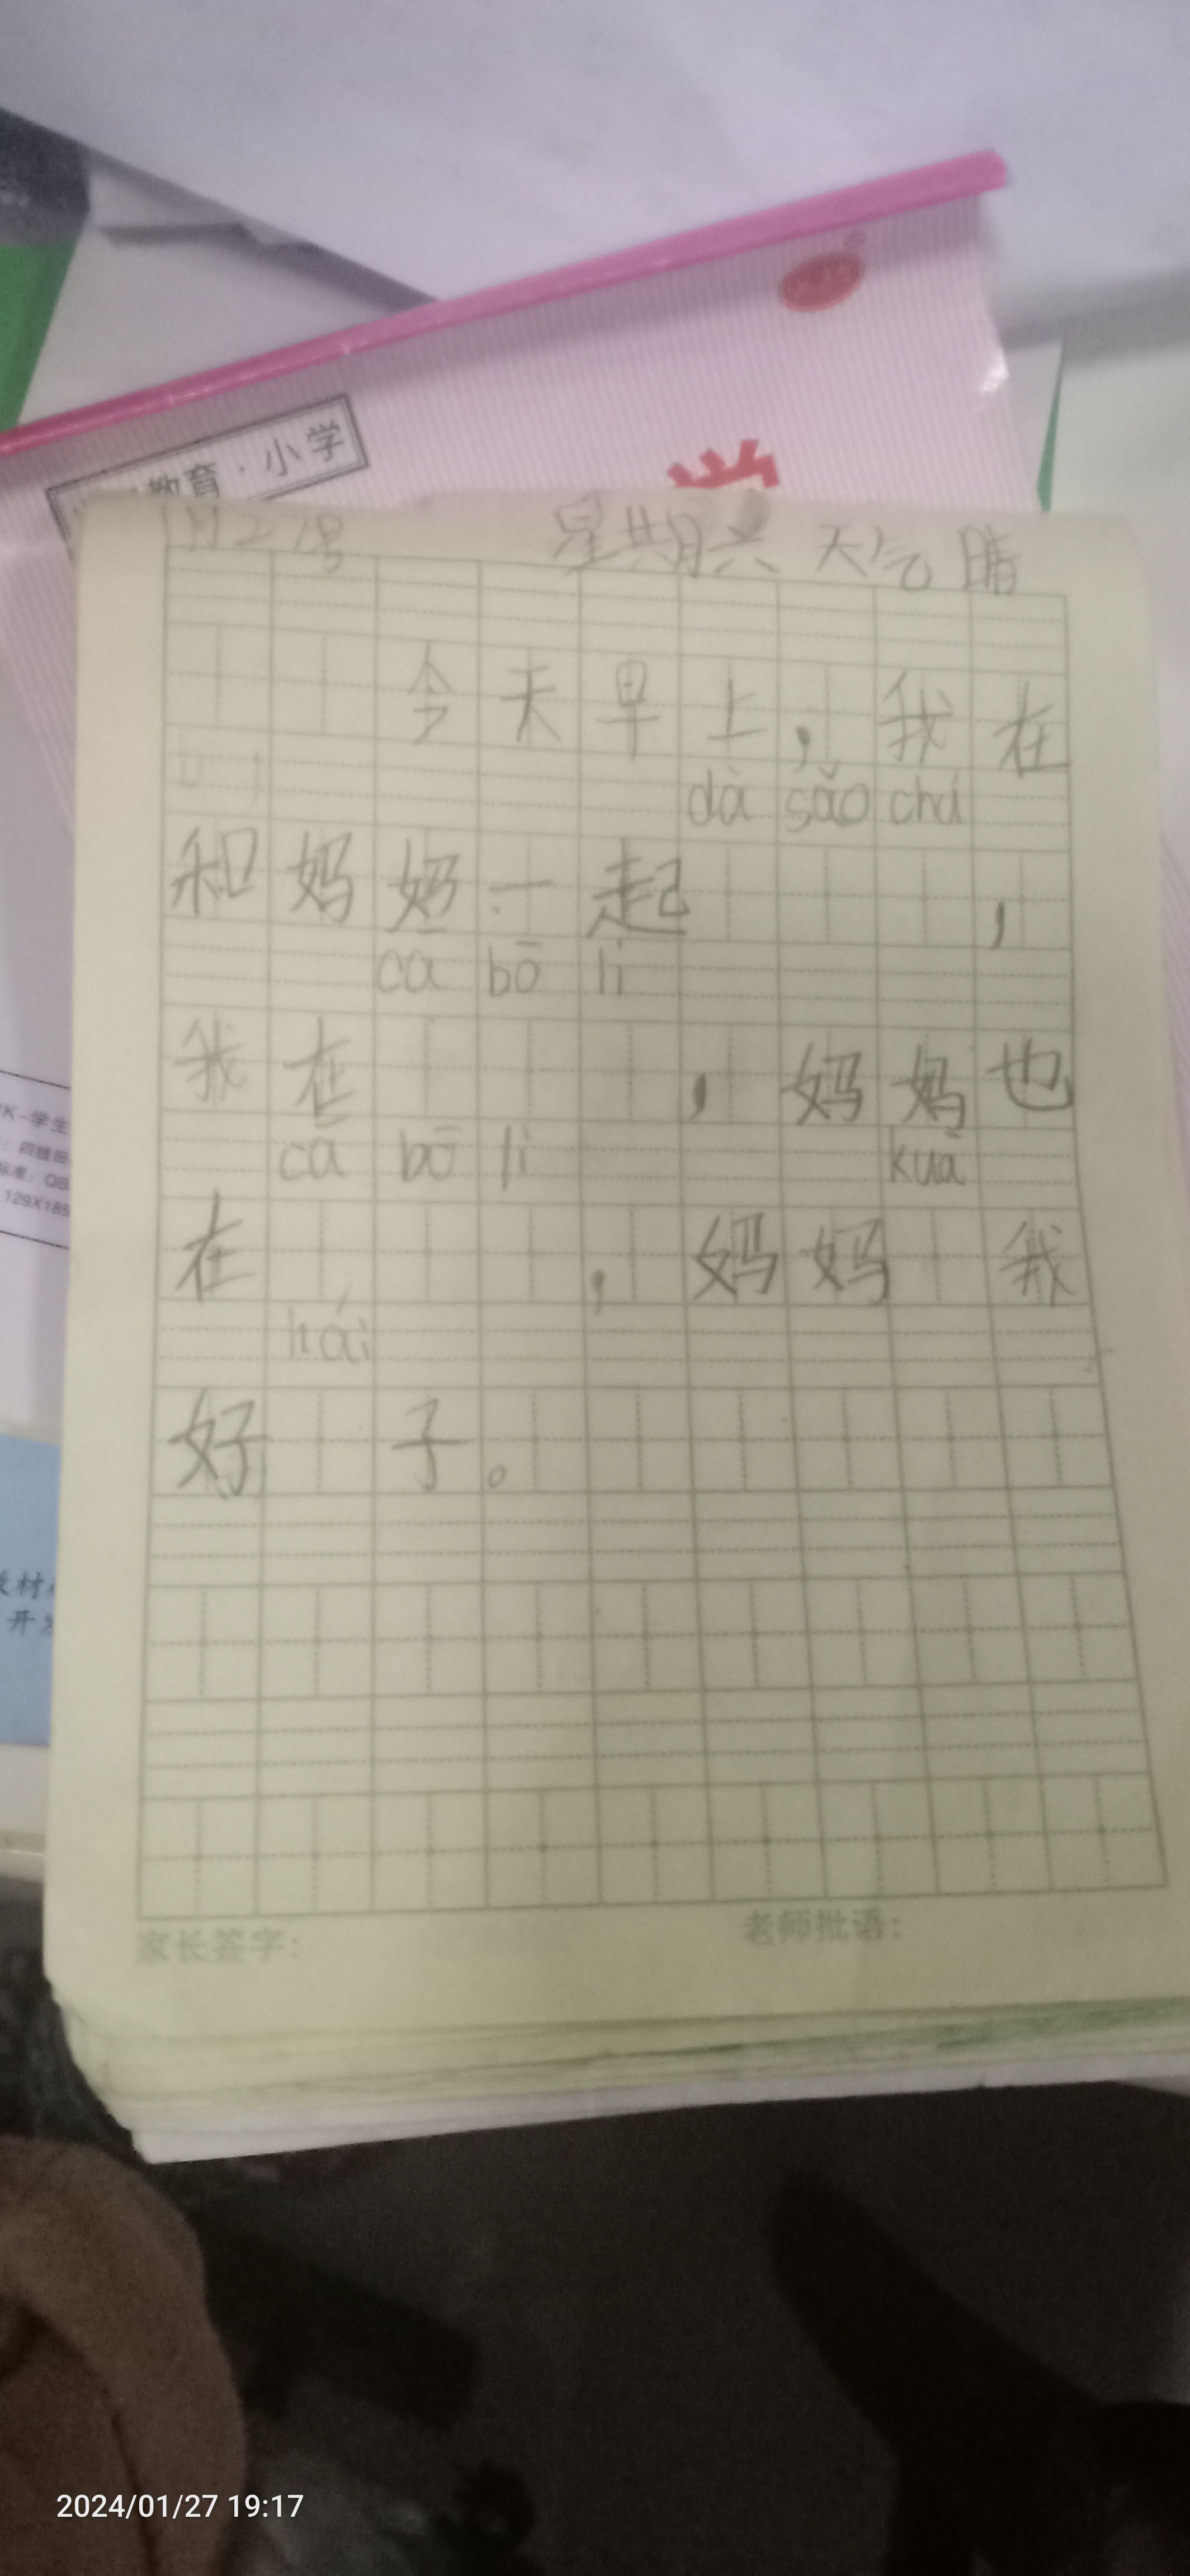 教育·小学
学
1月27号 星期六 天气晴
今天早上，我在
dà sǎo chú
和妈妈一起 ，
ca bō li
我在 ，妈妈也
cā bō li kuā
在 ，妈妈 我
hái
好 子。
家长签字： 老师批语：
K-学生
：四线田
标准：QB
129X189
教材
开发
2024/01/27 19:17